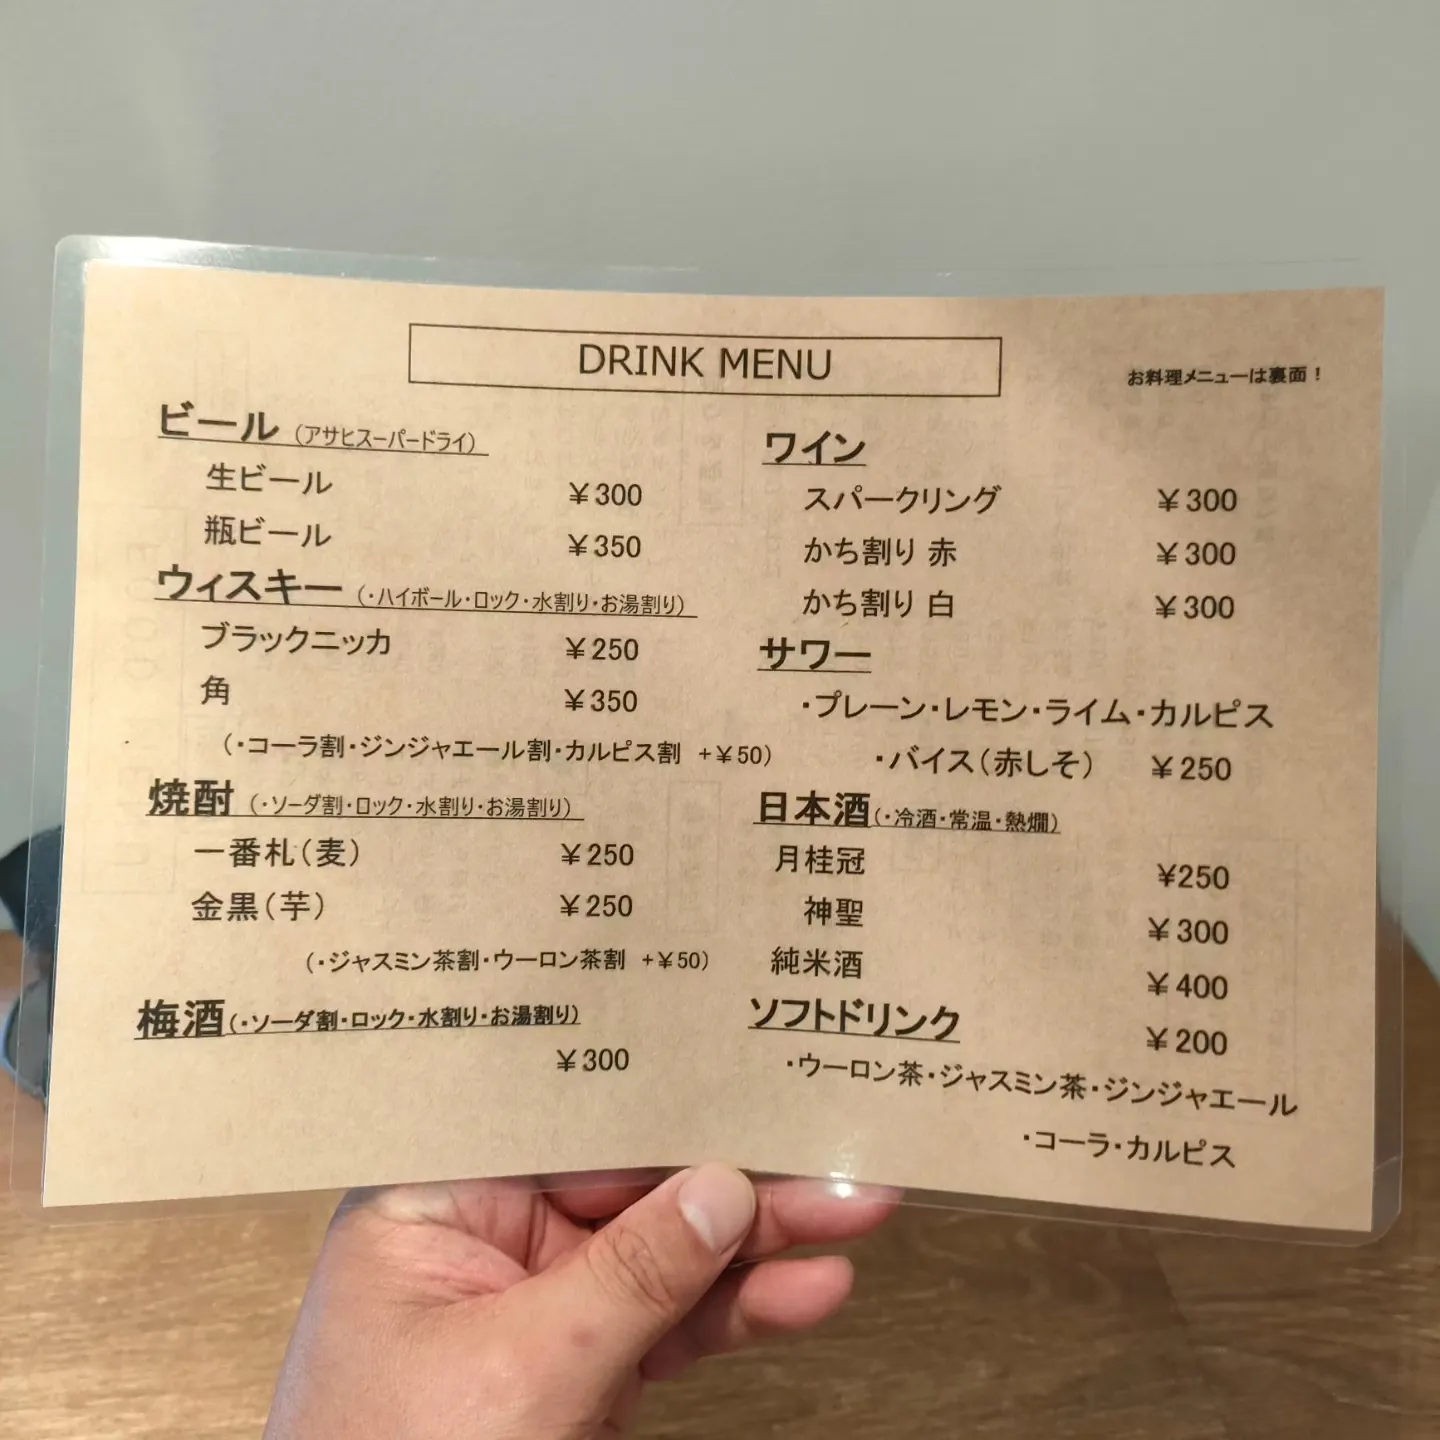 DRINK MENU
お料理メニューは裏面！
ビール（アサヒスーパードライ）
生ビール ￥300
瓶ビール ￥350
ウィスキー（・ハイボール・ロック・水割り・お湯割り）
ブラックニッカ ￥250
角 ￥350
（・コーラ割・ジンジャエール割・カルピス割 +￥50）
焼酎（・ソーダ割・ロック・水割り・お湯割り）
一番札（麦） ￥250
金黒（芋） ￥250
（・ジャスミン茶割・ウーロン茶割 +￥50）
梅酒（・ソーダ割・ロック・水割り・お湯割り）
￥300
ワイン
スパークリング ￥300
かち割り 赤 ￥300
かち割り 白 ￥300
サワー
・プレーン・レモン・ライム・カルピス
・バイス（赤しそ） ￥250
日本酒（・冷酒・常温・熱燗）
月桂冠 ¥250
神聖 ￥300
純米酒 ￥400
ソフトドリンク ￥200
・ウーロン茶・ジャスミン茶・ジンジャエール
・コーラ・カルピス